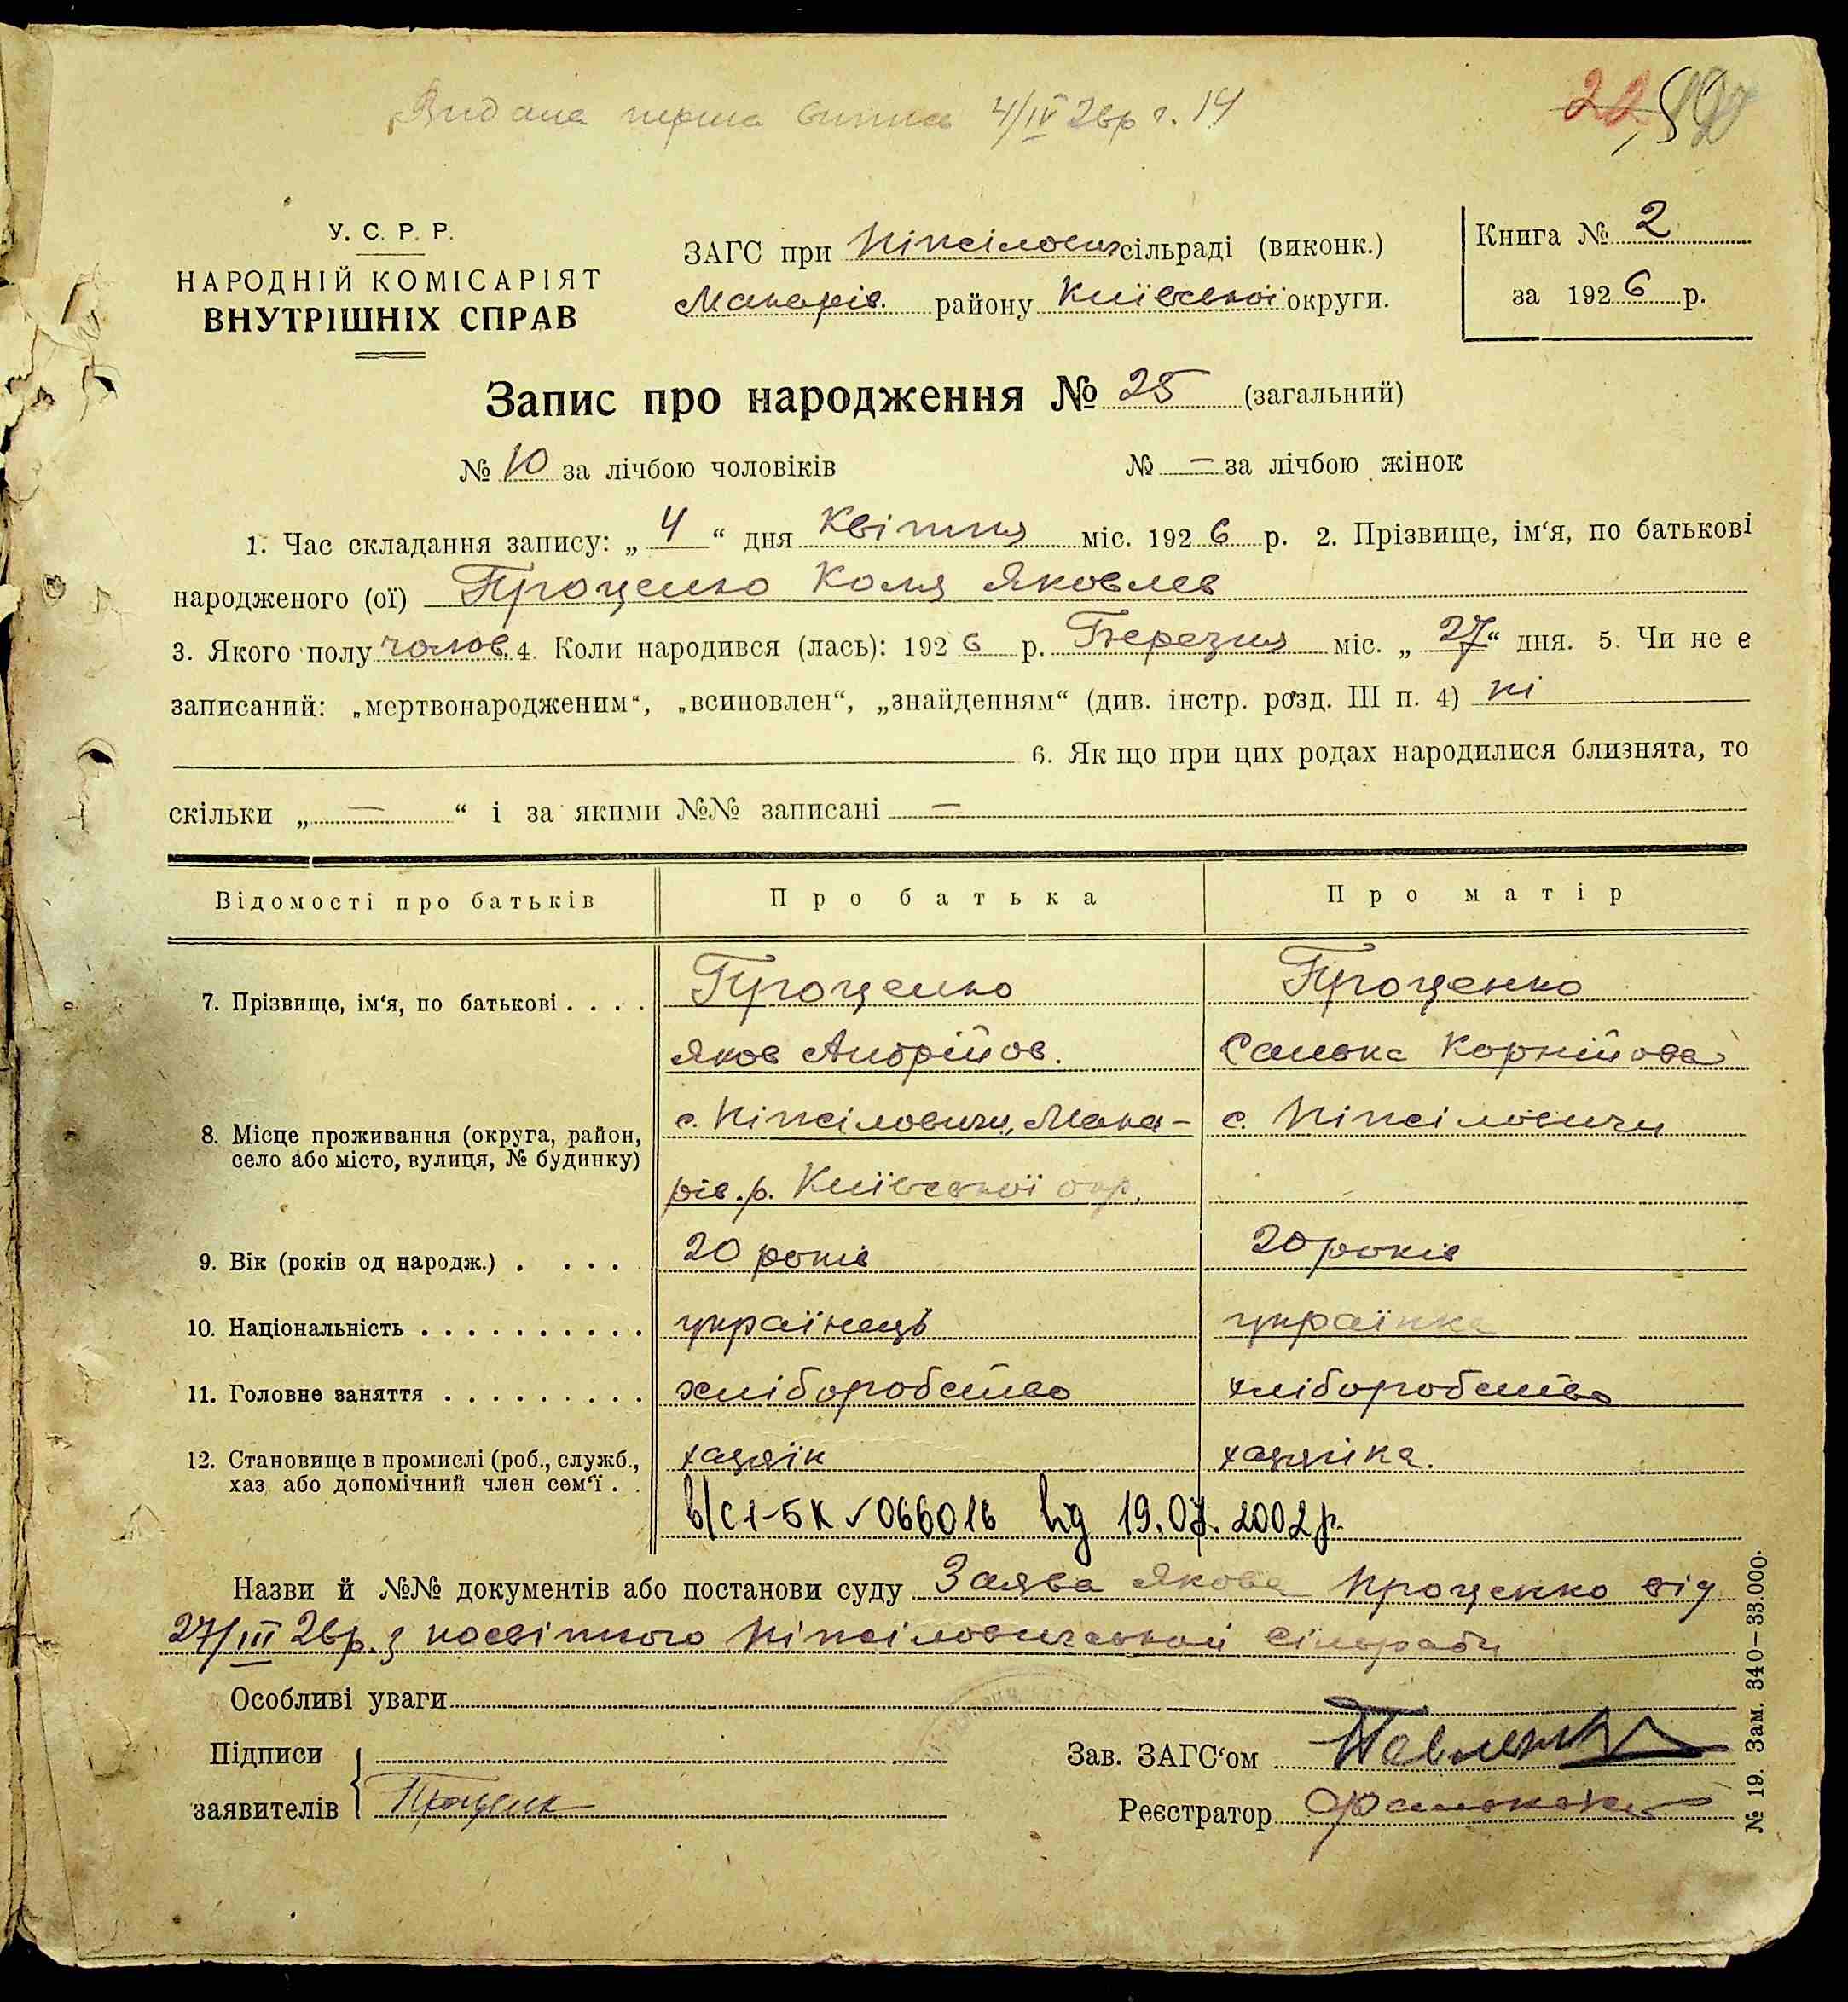 Видана перша випись 4/IV 26р г. 14
22
У. С. Р. Р.
НАРОДНІЙ КОМІСАРІЯТ
ВНУТРІШНІХ СПРАВ
ЗАГС при Ніжиловицьк сільраді (виконк.)
Макарів. району Київської округи.
Книга № 2
за 1926 р.
Запис про народження № 25 (загальний)
№ 10 за лічбою чоловіків № — за лічбою жінок
1. Час складання запису: „4“ дня Квітня міс. 1926 р. 2. Прізвище, ім‘я, по батькові
народженого (ої) Проценко Коля Яковлев
3. Якого полу чолов. 4. Коли народився (лась): 1926 р. Березня міс. „27“ дня. 5. Чи не є
записаний: „мертвонародженим“, „всиновлен“, „знайденням“ (див. інстр. розд. III п. 4) ні
6. Як що при цих родах народилися близнята, то
скільки „—“ і за якими №№ записані —
Відомості про батьків Про батька Про матір
7. Прізвище, ім‘я, по батькові . . . . Проценко Проценко
Яков Андрійов. Санька Корнійова
8. Місце проживання (округа, район, село або місто, вулиця, № будинку) с. Ніжиловичи, Мака- с. Ніжиловичи
рів. р. Київської окр.
9. Вік (років од народж.) . . . . 20 років 20 років
10. Національність . . . . . . . . . . українець українка
11. Головне заняття . . . . . . . . . хліборобство хліборобство
12. Становище в промислі (роб., служб., хаз або допомічний член сем‘ї . . хазяїн хазяїка.
в/с 1-БК √ 066016 від 19.07.2002р.
Назви й №№ документів або постанови суду Заява Якова Проценко від
27/III 26р. з посвіткою Ніжиловичської сільради
Особливі уваги
Підписи
заявителів Проценк
Зав. ЗАГС‘ом
Реєстратор
№ 19. Зам. 340—33.000.